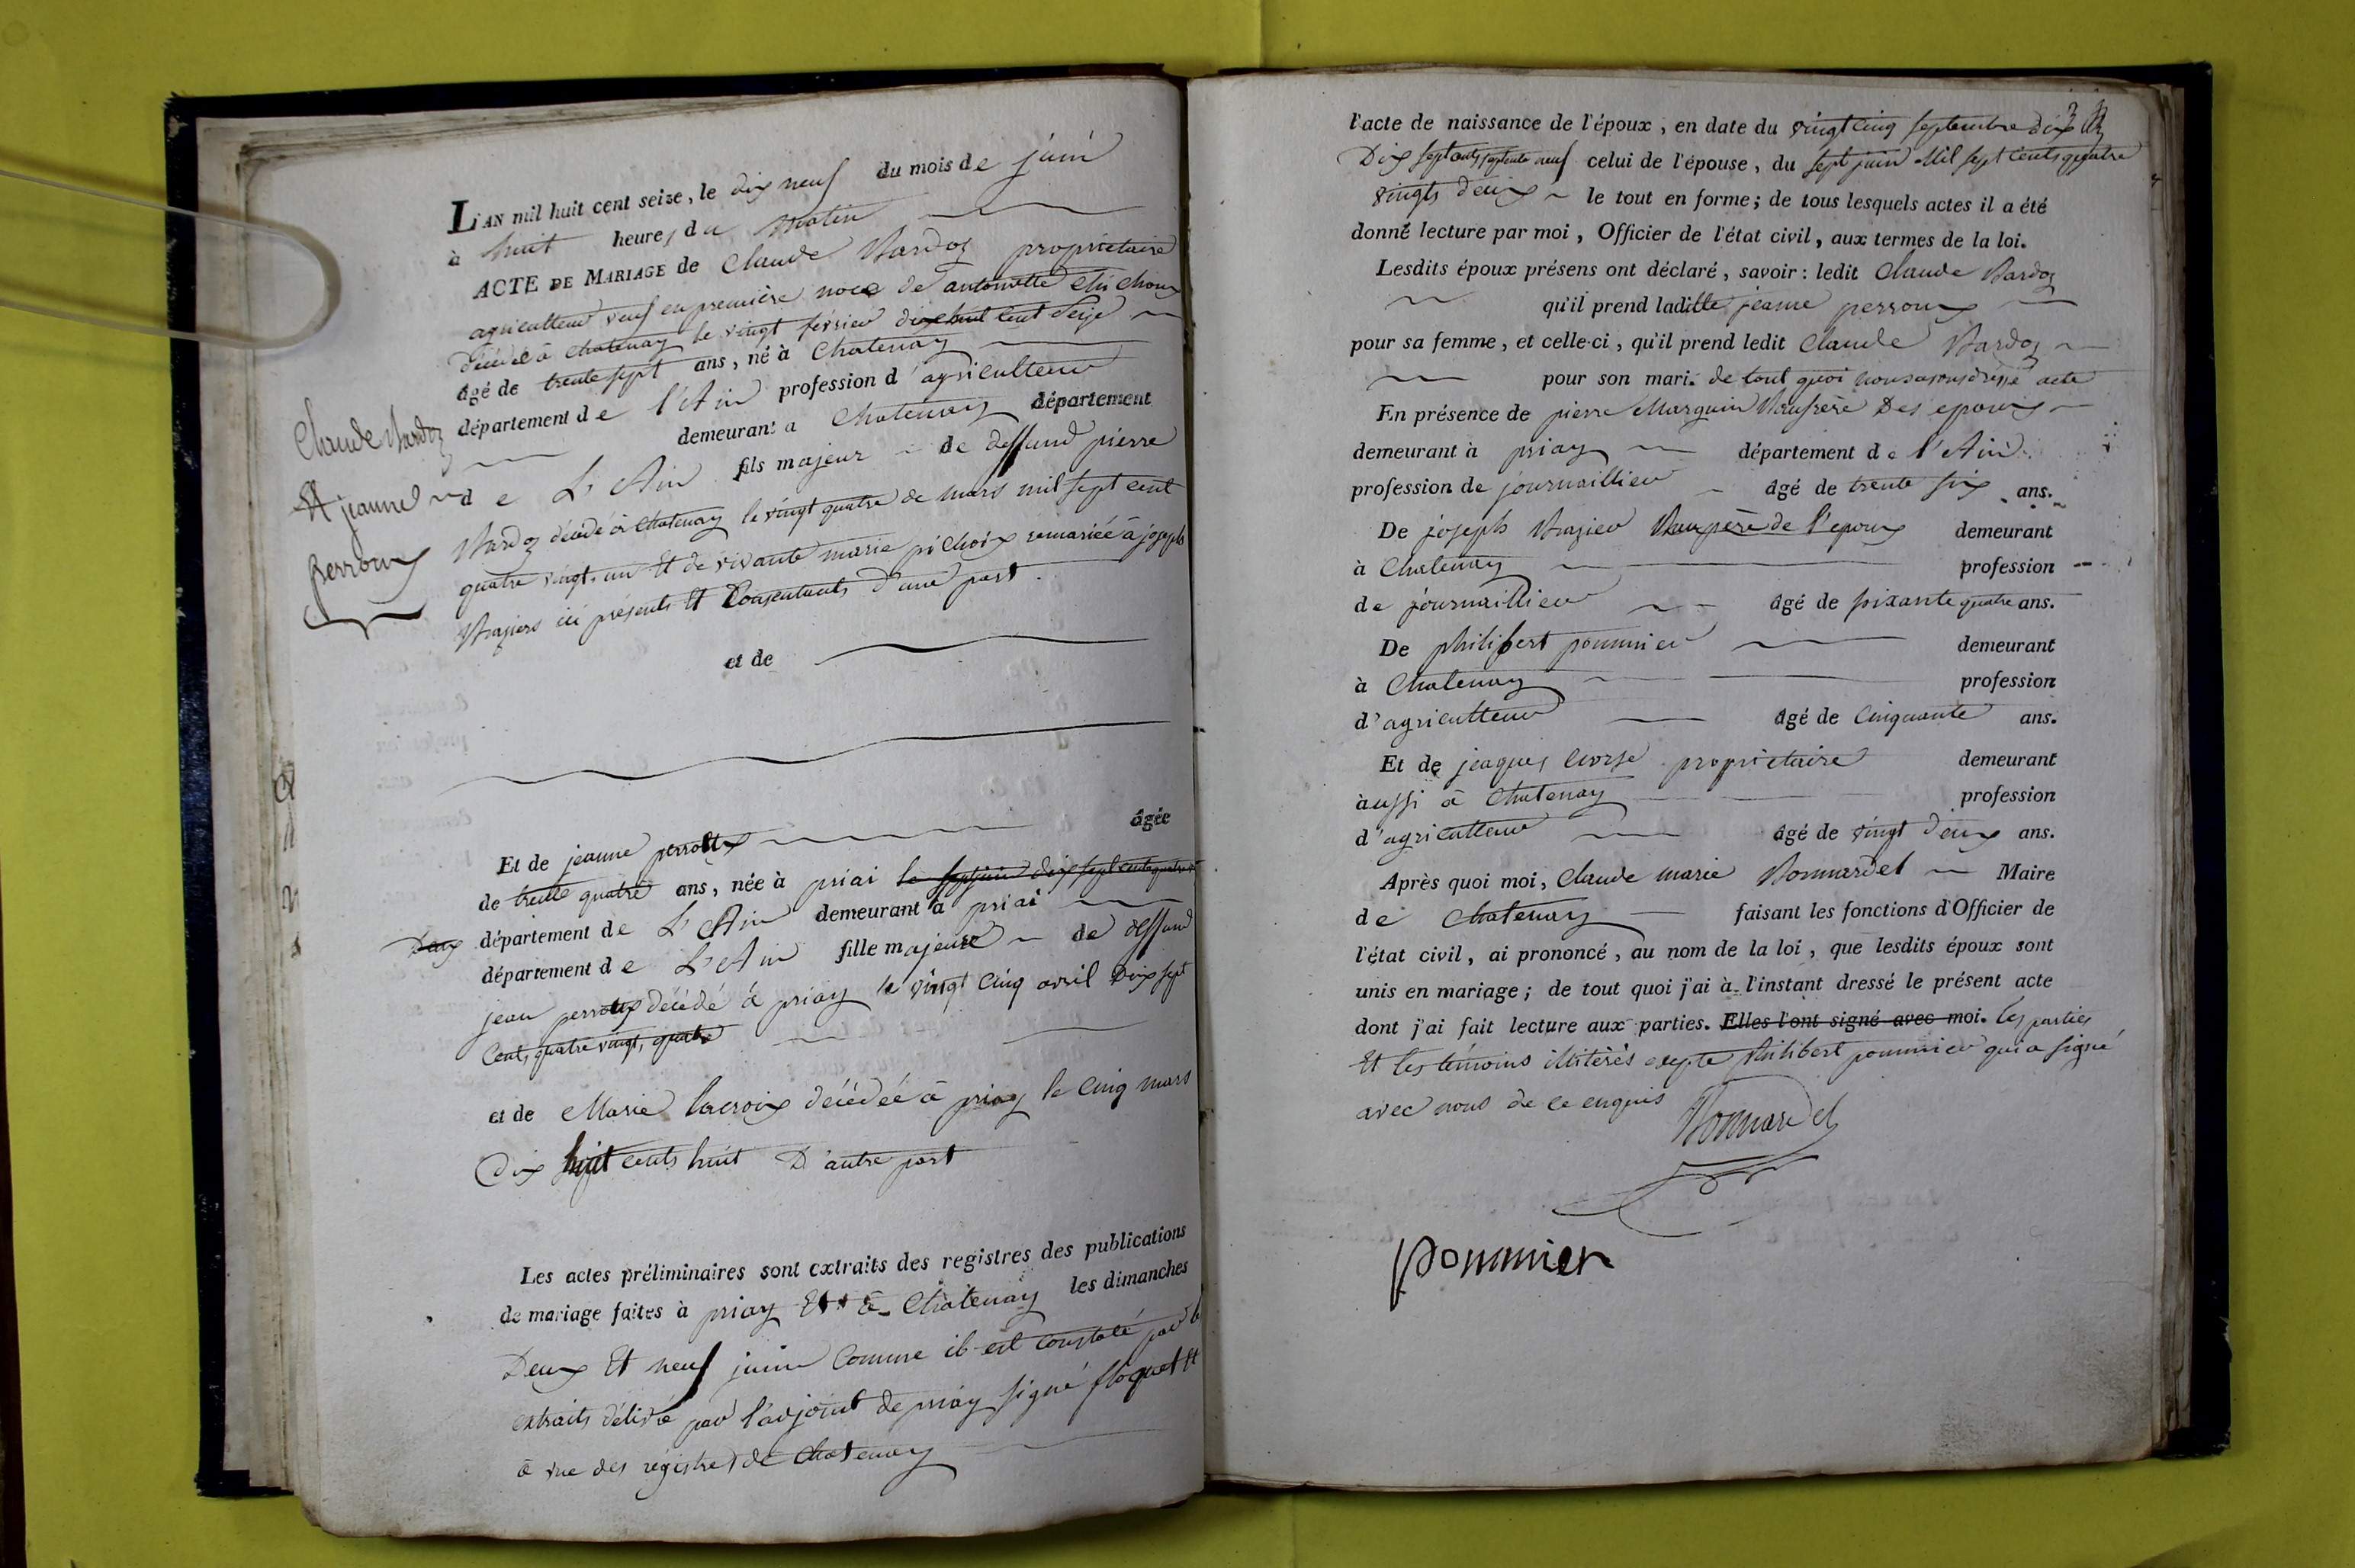 L'AN mil huit cent seize, le dix neuf du mois de juin
à huit heures du matin
ACTE DE MARIAGE de Claude Bardoz propriétaire
agriculteur veuf en première noce de antoinette
décédé à Chatenay le vingt février dix huit cent Seize
âgé de trente sept ans, né à Chatenay
département de l'Ain profession d'agriculteur
demeurant a Chatenay département
de L'Ain fils majeur de deffund pierre
Bardoz décédé à Chatenay le vingt quatre de mars mil sept cent
quatre vingt un Et de vivante marie pichoix remariée à joseph
Braziers ici présents Et Consentants d'une part
Claude Bardoz
Et jeanne
perroux
et de
Et de jeanne perroux âgée
de trente quatre ans, née à priai le sept juin dix sept cents quatre vt
Deux département de L'Ain demeurant à priai
département de L'Ain fille majeure de deffund
jean perroux décédé à priay le vingt cinq avril Dix sept
Cents quatre vingt quatre
et de Marie lacroix décédée à priay le cinq mars
Dix huit cents huit D'autre part
Les actes préliminaires sont extraits des registres des publications
de mariage faites à priay Et à Chatenay les dimanches
Deux Et neuf juin Comme il est constaté par le
extraits délivré par l'adjoint de priay signé floquet Et
à vue des régistres de Chatenay
l'acte de naissance de l'époux, en date du vingt cinq septembre dix
Dix sept cents septente neuf celui de l'épouse, du sept juin Mil sept cents quatre
vingts deux le tout en forme; de tous lesquels actes il a été
donné lecture par moi, Officier de l'état civil, aux termes de la loi.
Lesdits époux présens ont déclaré, savoir: ledit Claude Bardoz
qu'il prend ladite jeanne perroux
pour sa femme, et celle-ci, qu'il prend ledit Claude Bardoz
pour son mari. de tout quoi nous avons dressé acte
En présence de pierre Marguin Beaufrère Des epoux
demeurant à priay département de l'Ain
profession de journaillier âgé de trente six ans.
De joseph Brazier Beaupère de l'epoux demeurant
à Chatenay profession
de journaillier âgé de soixante quatre ans.
De philibert pommier demeurant
à Chatenay profession
d'agriculteur âgé de Cinquante ans.
Et de jeaques corse propriétaire demeurant
aussi à Chatenay profession
d'agriculteur âgé de vingt deux ans.
Après quoi moi, Claude marie Bonnardel Maire
de Chatenay faisant les fonctions d'Officier de
l'état civil, ai prononcé, au nom de la loi, que lesdits époux sont
unis en mariage; de tout quoi j'ai à l'instant dressé le présent acte
dont j'ai fait lecture aux parties. Elles l'ont signé avec moi. les parties
Et les témoins illitérés exepte philibert pommier qui a signé
avec nous de ce enquis
Bonnardel
pommier